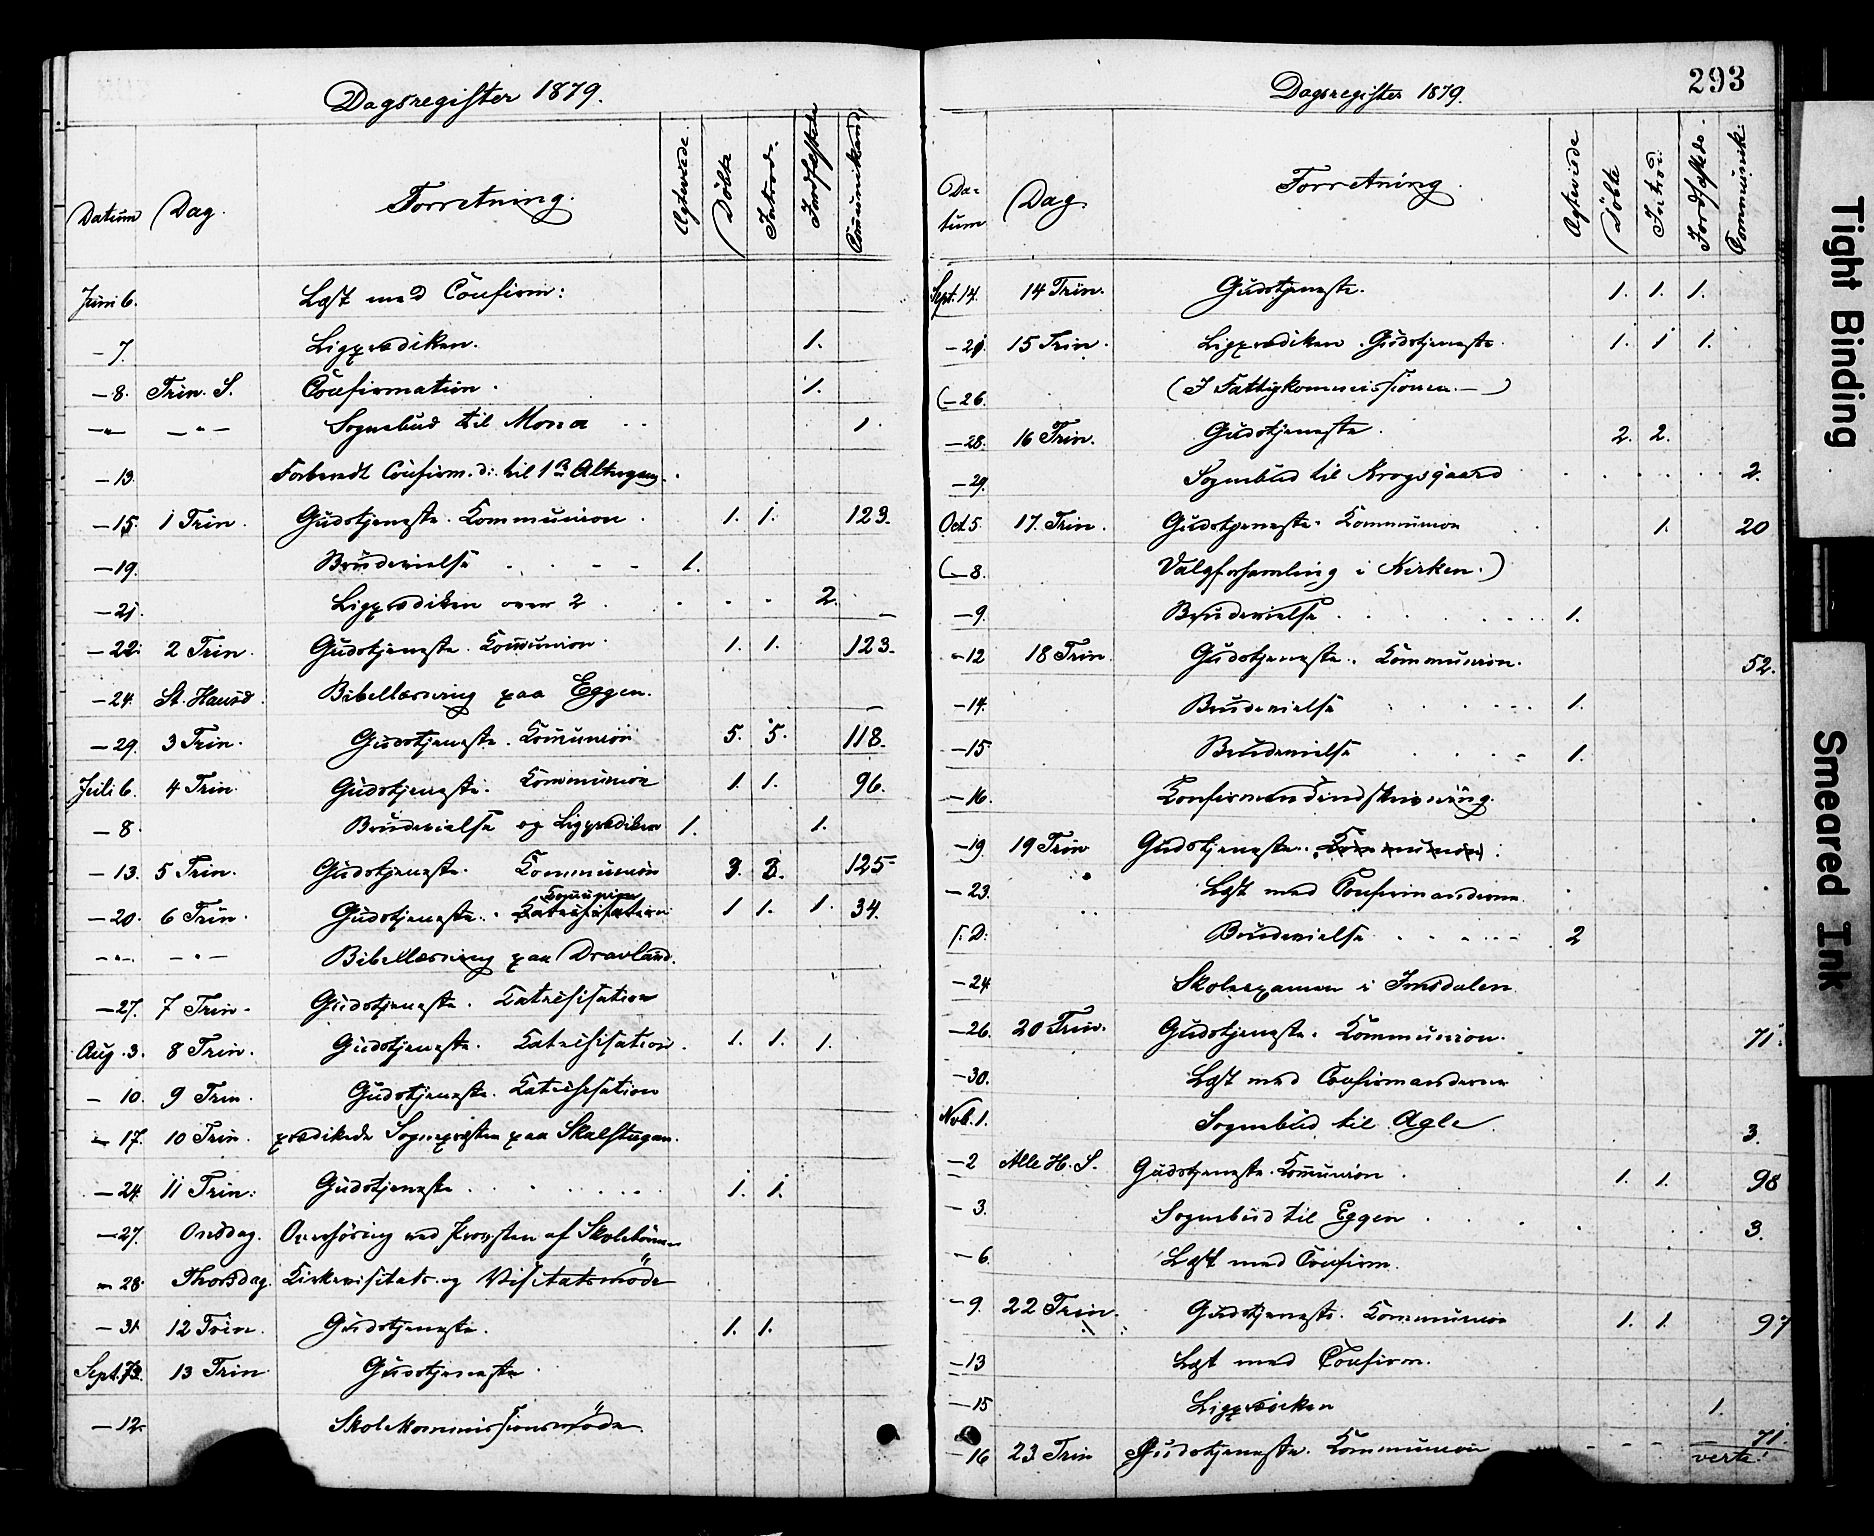 Dagsregister 1879.
Datum Dag. Forretning. Agteviede. Döbte Introd. Jordfæstede Communikand.
Juni 6. Læst med Confirm:
— 7. Ligprædiken. 1.
— 8. Trin. S. Confirmation. 1.
— „ — — „ — Sognebud til Mona 1.
— 13. Forberedt Confirm. d: til 1ste Altergang.
— 15. 1 Trin. Gudstjeneste. Kommunion 1. 1. 123.
— 19. Brudevielse 1.
— 21. Ligprædiken over 2 2.
— 22. 2 Trin. Gudstjeneste. Kommunion 1. 1. 123.
— 24. St. Hansd. Bibellæsning paa Eggen.
— 29. 3 Trin. Gudstjeneste. Kommunion 5. 5. 118.
Juli 6. 4 Trin. Gudstjeneste. Kommunion 1. 1. 96.
— 8. Brudevielse og Ligprædiken 1. 1.
— 13. 5 Trin. Gudstjeneste. Kommunion 3. 3. 125
— 20. 6 Trin. Gudstjeneste. Katechisation Kommunion 1 1. 1. 34.
— „ — — „ — Bibellæsning paa Dravland.
— 27. 7 Trin. Gudstjeneste. Katechisation
Aug. 3. 8 Trin. Gudstjeneste. Katechisation. 1. 1. 1.
— 10. 9 Trin. Gudstjeneste. Katechisation
— 17. 10 Trin. prædikede Sognepresten paa Skalstugan.
— 24. 11 Trin: Gudstjeneste 1. 1.
— 27. Onsdag. Overhöring ved Provsten af Skolebörnene
— 28. Thorsdag. Kirkevisitats og Visitatsmöde
— 31. 12 Trin. Gudstjeneste. 1. 1.
Sept. 7. 13 Trin Gudstjeneste.
— 12. Skolekommissionsmöde
Dagsregister 1879. 293
Datum Dag. Forretning. Agteviede Döbte Introd: Jordfæstede. Communik:
Sept. 14. 14 Trin. Gudstjeneste. 1. 1. 1.
— 21. 15 Trin. Ligprædiken. Gudstjeneste. 1. 1 1.
(— 26. (I Fattigkommissionen. —)
— 28. 16 Trin. Gudstjeneste. 2. 2.
— 29. Sognebud til Krogsgaard 2.
Oct. 5. 17. Trin. Gudstjeneste. Kommunion 1. 20
(— 8. Valgforsamling i Kirken.)
— 9. Brudevielse 1.
— 12 18 Trin. Gudstjeneste. Kommunion. 52.
— 14. Brudevielse 1.
— 15. Brudevielse 1.
— 16. Konfirmandindskrivning.
— 19. 19 Trin Gudstjeneste. Kommunion.
— 23. Læst med Confirmanderne
S. D: Brudevielse 2
— 24 Skoleexamen i Insdalen
— 26. 20 Trin. Gudstjeneste. Kommunion. 71.
— 30. Læst med Confirmanderne
Novb. 1. Sognebud til Agle 3.
— 2 Alle H. S. Gudstjeneste. Kommunion 1. 1. 98
— 3. Sognebud til Eggen 3.
— 6. Læst med Confirm.
— 9. 22 Trin. Gudstjeneste. Kommunion 1. 1. 97
— 13 Læst med Confirm.
— 15 Ligprædiken 1.
— 16 23 Trin Gudstjeneste. Kommunion 71.
verte!
Tight Binding
Smeared Ink